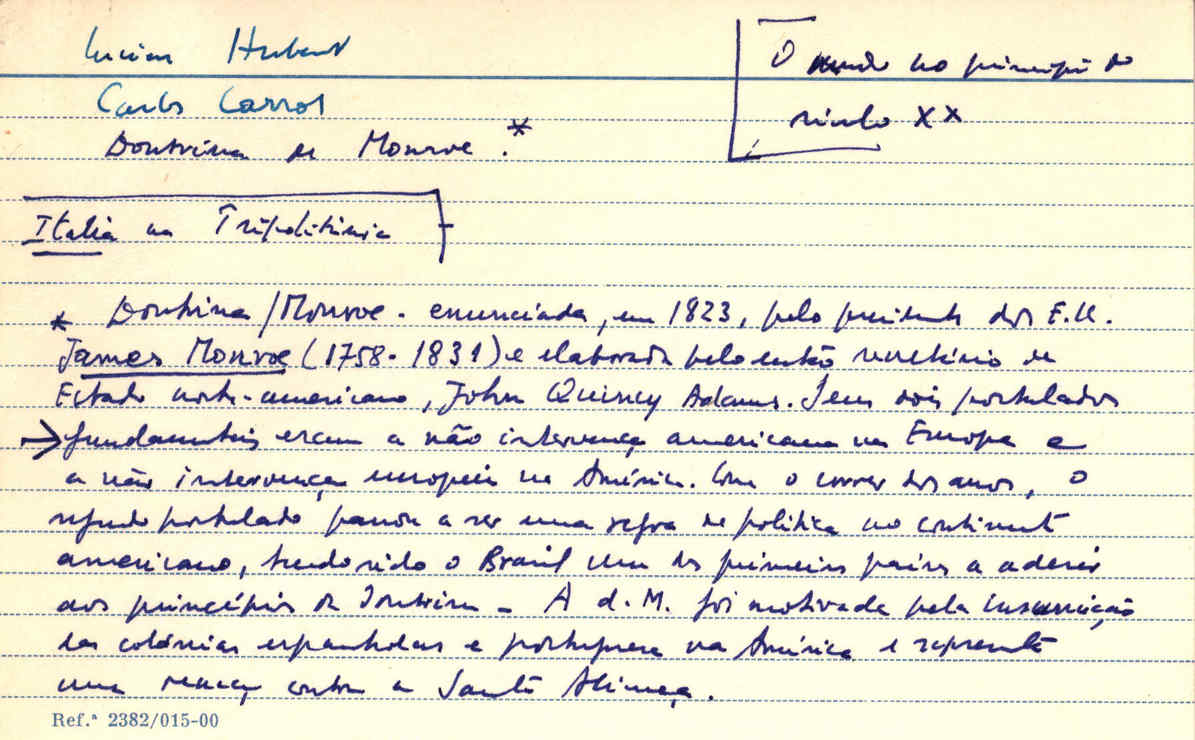 Lucien Hubert
O mundo no princípio do
século XX
Carlos Carrol
Doutrina de Monroe.*
Italia na Tripolitânia
* Doutrina / Monroe. enunciada, em 1823, pelo presidente dos E.U.
James Monroe (1758-1831) e elaborada pelo então secretário de
Estado norte-americano, John Quincy Adams. Seus dois postulados
→ fundamentais eram a não intervenção americana na Europa e
a não intervenção europeia na América. Com o correr dos anos, o
segundo postulado passou a ser uma regra de política no continente
americano, tendo sido o Brasil um dos primeiros países a aderir
aos princípios da Doutrina - A d. M. foi motivada pela insurreição
das colónias espanholas e portuguesa na América e representa
uma reacção contra a Santa Aliança.
Ref.ª 2382/015-00